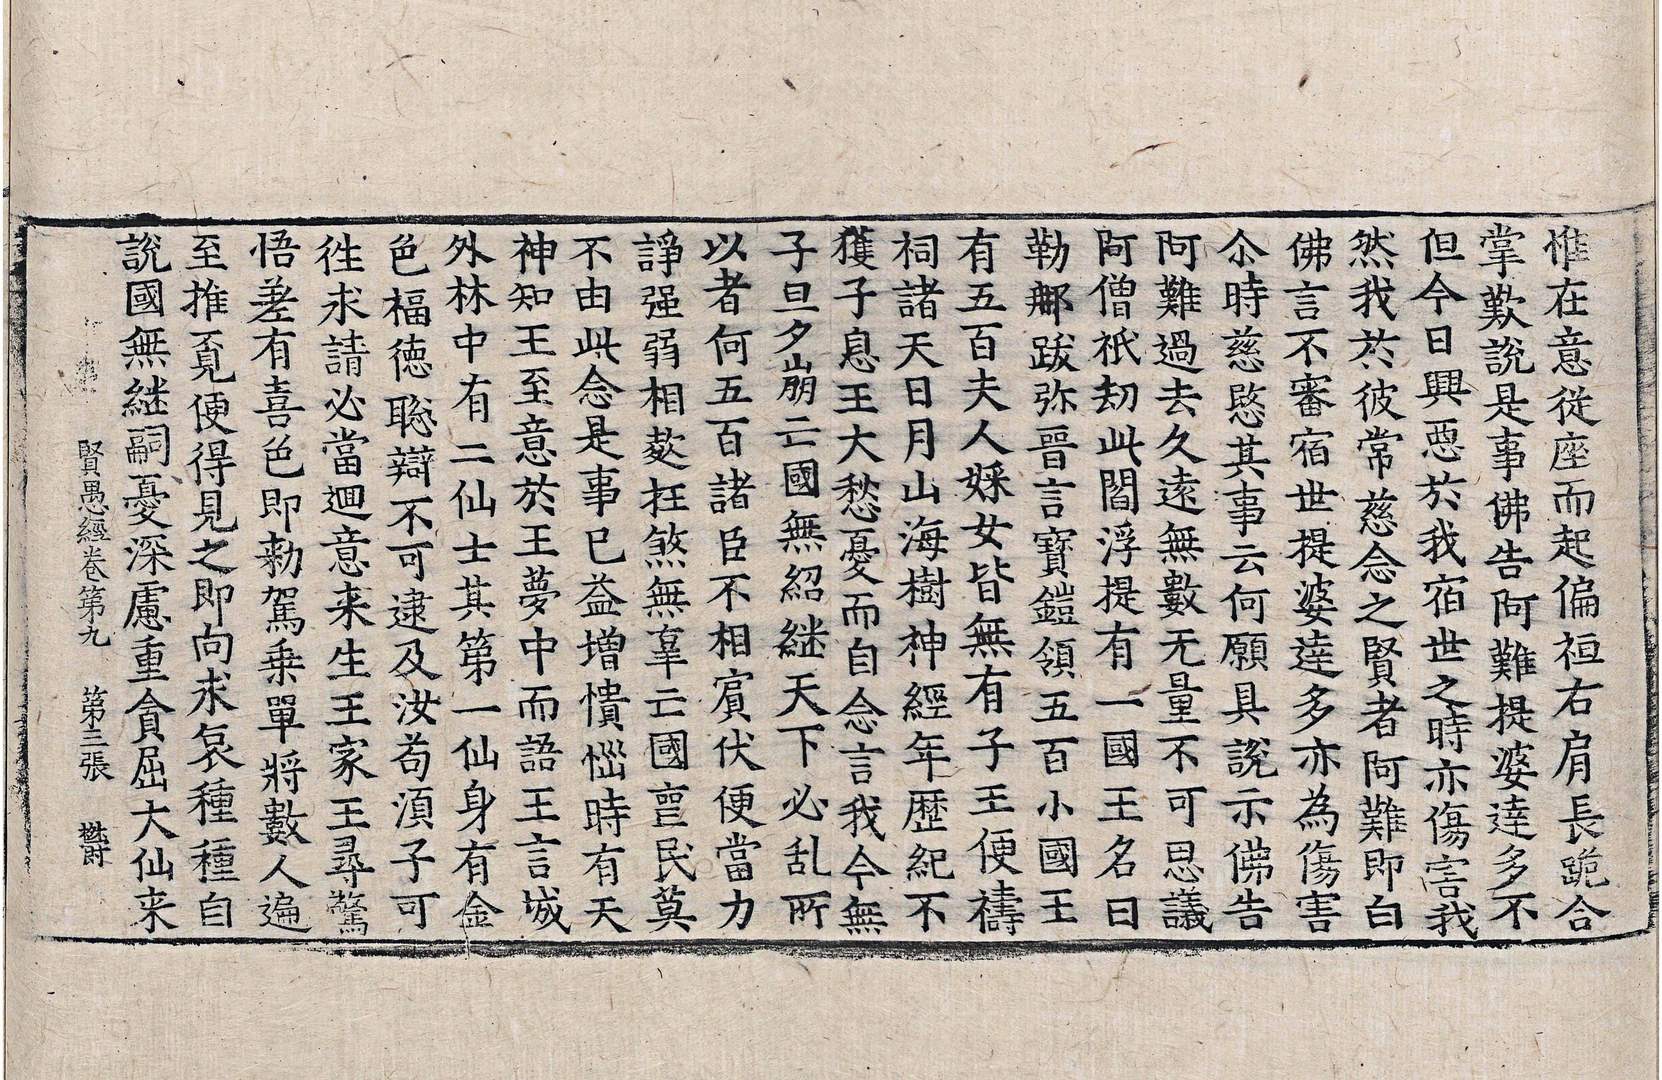 惟在意從座而起偏袒右肩長跪合
掌歎說是事佛告阿難提婆達多不
但今日興惡於我宿世之時亦傷害我
然我於彼常慈念之賢者阿難即白
佛言不審宿世提婆達多亦為傷害
尒時慈愍其事云何願具說示佛告
阿難過去久遠無數无量不可思議
阿僧祇劫此閻浮提有一國王名曰
勒那跋弥晉言寶鎧領五百小國王
有五百夫人婇女皆無有子王便禱
祠諸天日月山海樹神經年歷紀不
獲子息王大愁憂而自念言我今無
子旦夕崩亡國無紹継天下必乱所
以者何五百諸臣不相賓伏便當力
諍强弱相欺抂煞無辜亡國喪民莫
不由此念是事已益增憒惱時有天
神知王至意於王夢中而語王言城
外林中有二仙士其第一仙身有金
色福德聡辯不可逮及汝苟湏子可
徃求請必當迴意来生王家王尋驚
悟差有喜色即勑駕乗單將數人遍
至推覔便得見之即向求哀種種自
說國無継嗣憂深慮重貪屈大仙来
賢愚經卷第九　第三張　欝